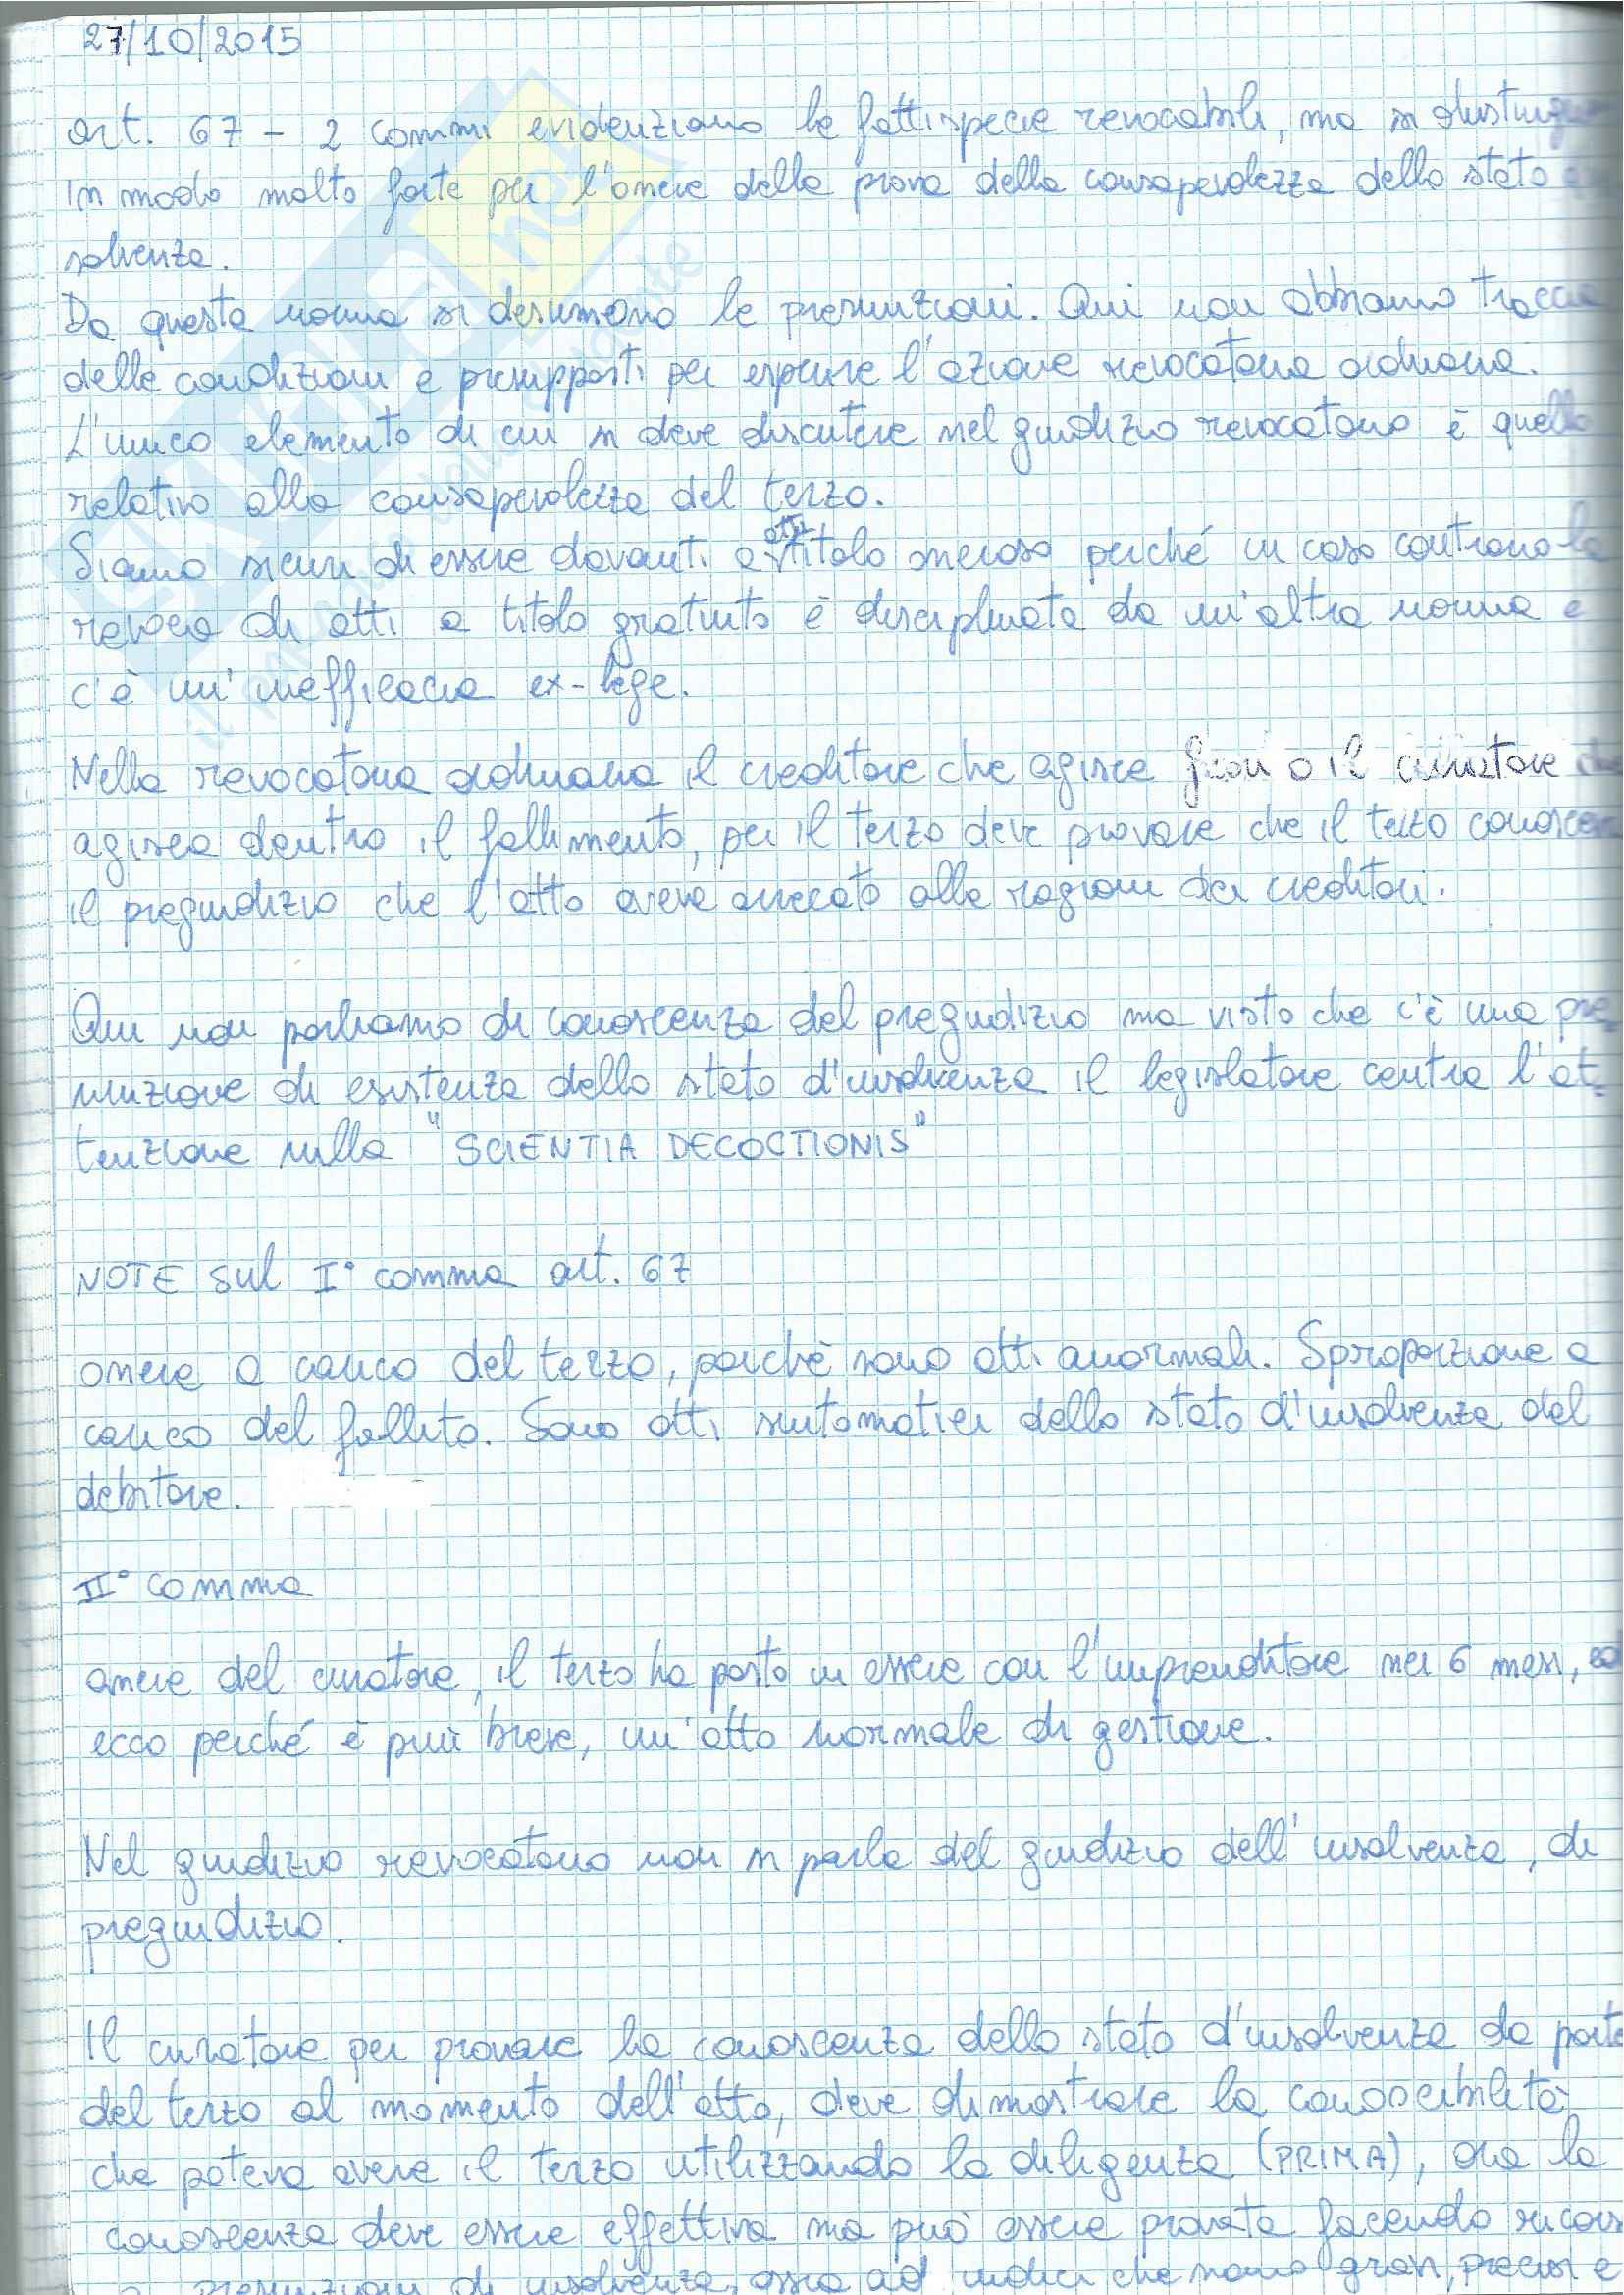 27/10/2015
art. 67 - 2 commi evidenziano le fattispecie revocabili, ma si
in modo molto forte per l'onere della prova della consapevolezza dello stato
solvenza.
Da questa norma si desumono le presunzioni. Qui non abbiamo traccia
delle condizioni e presupposti per esperire l'azione revocatoria ordinaria.
L'unico elemento di cui si deve discutere nel giudizio revocatorio è quello
relativo alla consapevolezza del terzo.
Siamo sicuri di essere davanti a atti titolo oneroso perché in caso contrario la
revoca di atti a titolo gratuito è disciplinata da un'altra norma e
c'è un'inefficacia ex-lege.
Nella revocatoria ordinaria il creditore che agisce fuori o il curatore che
agisca dentro il fallimento, per il terzo deve provare che il terzo
il pregiudizio che l'atto aveva arrecato alle ragioni dei creditori.
Qui non parliamo di conoscenza del pregiudizio ma visto che c'è una pre
sunzione di esistenza dello stato d'insolvenza il legislatore centra l'at-
tenzione sulla "SCIENTIA DECOCTIONIS"
NOTE sul I° comma art. 67
onere a carico del terzo, poiché sono atti anormali. Sproporzione a
carico del fallito. Sono atti sintomatici dello stato d'insolvenza del
debitore.
II° comma
onere del curatore, il terzo ha posto in essere con l'imprenditore nei 6 mesi,
ecco perché è più breve, un'atto normale di gestione.
Nel giudizio revocatorio non si parla del giudizio dell'insolvenza, di
pregiudizio.
Il curatore per provare la conoscenza dello stato d'insolvenza da parte
del terzo al momento dell'atto, deve dimostrare la conoscibilità
che poteva avere il terzo utilizzando la diligenza (PRIMA), ora la
conoscenza deve essere effettiva ma può essere provata facendo
presunzioni di insolvenza, ossia ad indici che siano gravi, precisi e